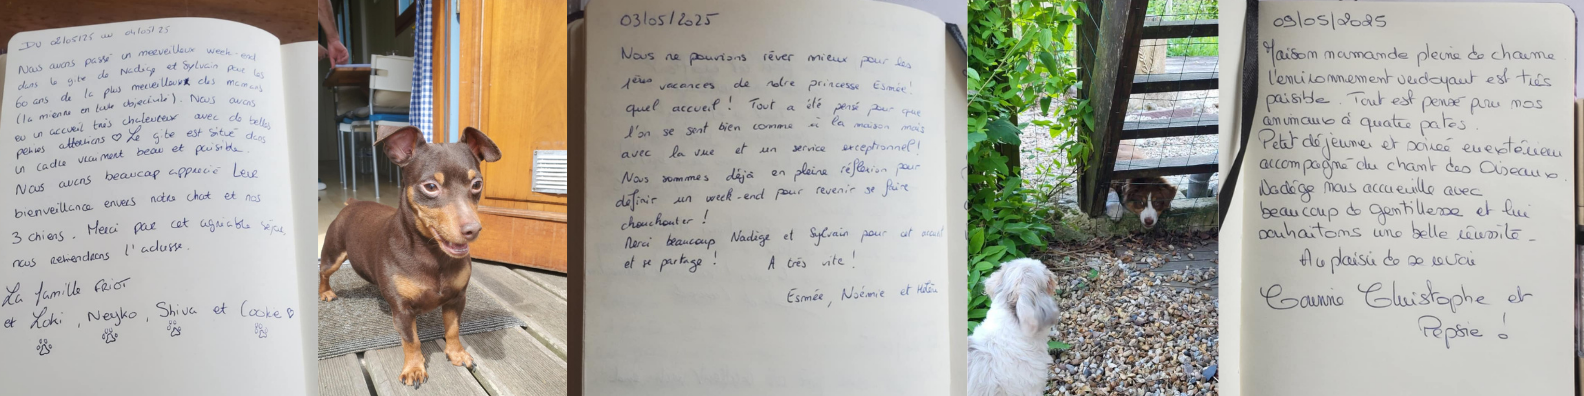 Du 02/05/25 au 04/05/25
Nous avons passé un merveilleux week-end
dans le gîte de Nadège et Sylvain pour les
60 ans de la plus merveilleuse des mamans
(la mienne en toute objectivité). Nous avons
eu un accueil très chaleureux avec de belles
petites attentions ♡ Le gîte est situé dans
un cadre vraiment beau et paisible.
Nous avons beaucoup apprécié leur
bienveillance envers notre chat et nos
3 chiens. Merci pour cet agréable séjour
nous retiendrons l'adresse.
La famille FRIOT
et Loki, Neyko, Shiva et Cookie ♡
03/05/2025
Nous ne pouvions rêver mieux pour les
1ères vacances de notre princesse Esmée!
quel accueil! Tout a été pensé pour que
l'on se sent bien comme à la maison mais
avec la vue et un service exceptionnel!
Nous sommes déjà en pleine réflexion pour
définir un week-end pour revenir se faire
chouchouter!
Merci beaucoup Nadège et Sylvain pour cet accueil
et se partage! A très vite!
Esmée, Noémie et
09/05/2025
Maison normande pleine de charme.
l'environnement verdoyant est très
paisible. Tout est pensé pour nos
animaux à quatre pates.
Petit déjeuner et soirée en extérieur
accompagné du chant des Oiseaux.
Nadège nous accueille avec
beaucoup de gentillesse et lui
souhaitons une belle réussite.
Au plaisir de se revoir
Corinne Christophe et
Pepsie!